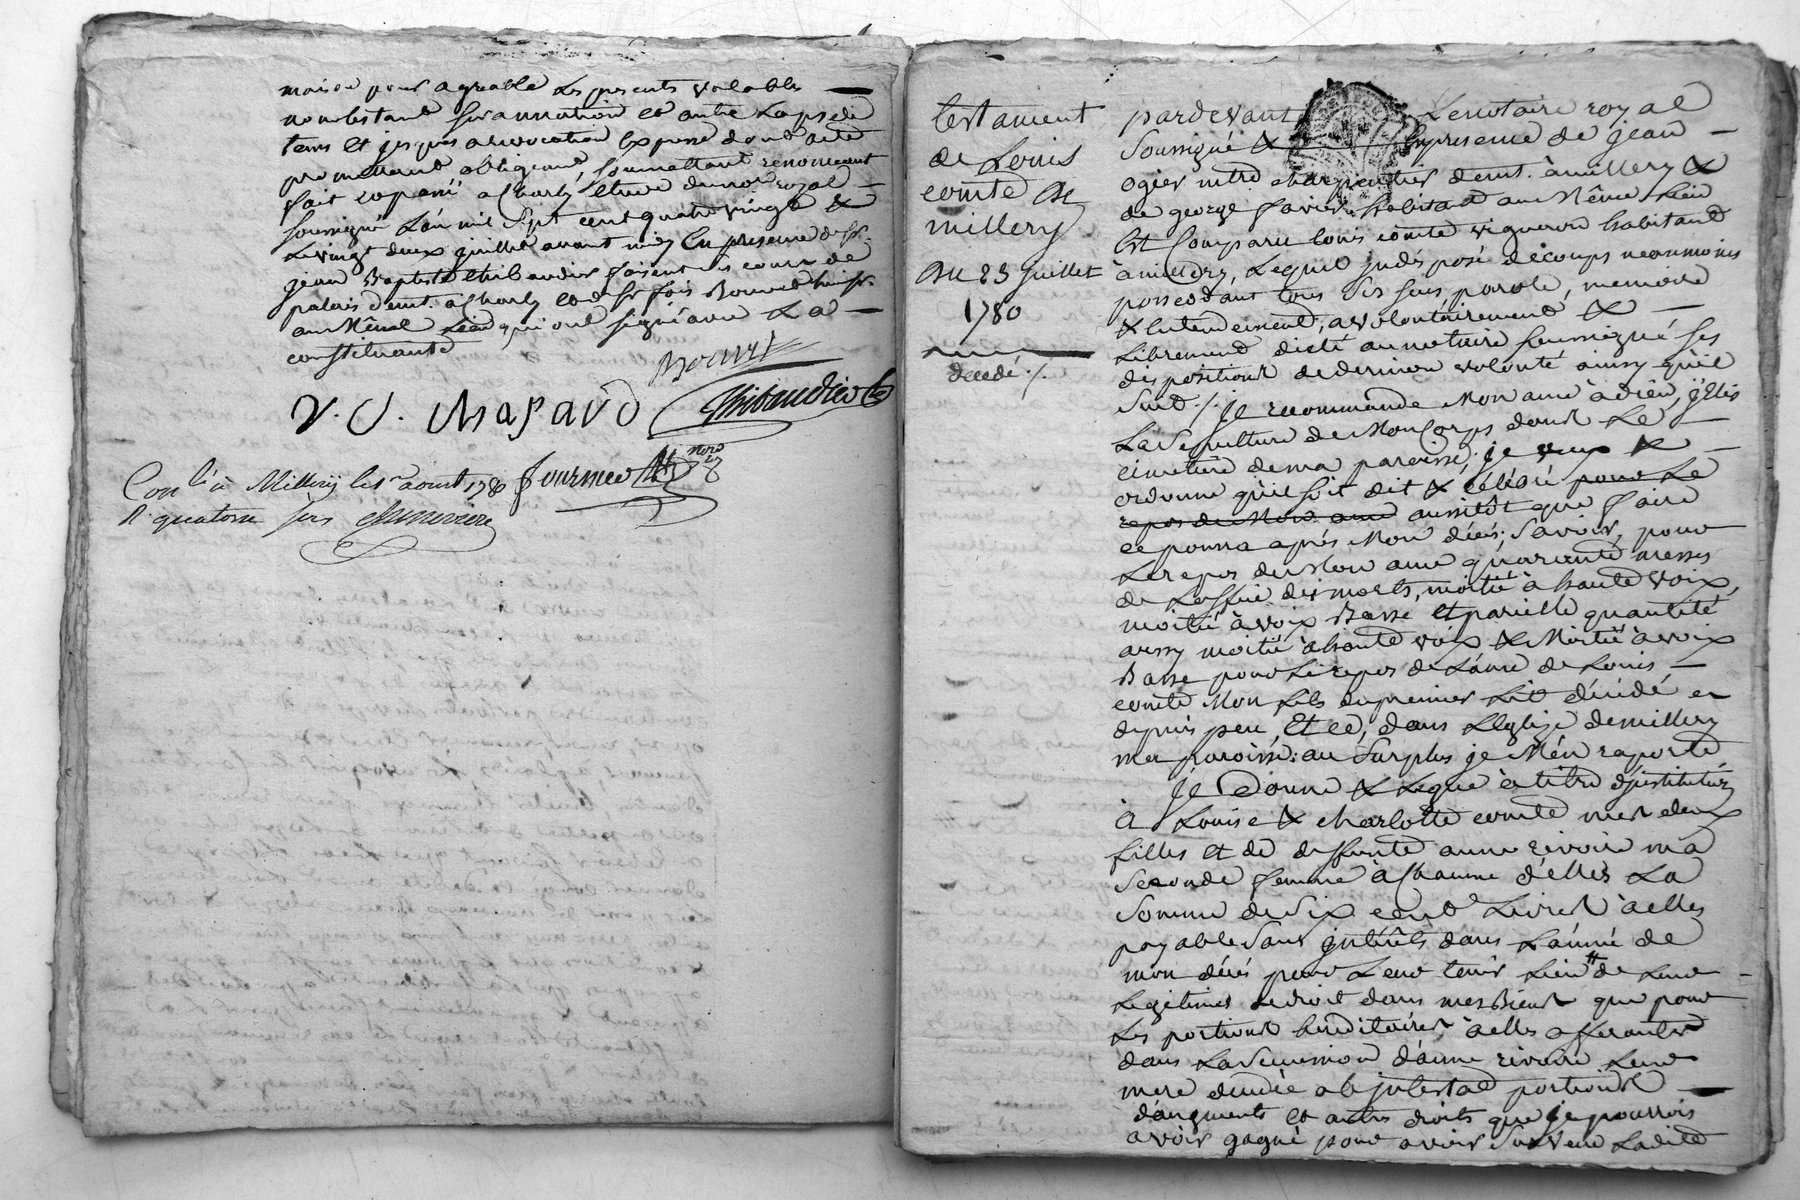 maison pour agreable les presents valables
nonobstant surannation et autre laps de
tems et jusques a revocation expresse dont acte
promettant obligeant, soumettant renonceant
fait et passé a Charly étude du no.re royal
soussigné L'an mil sept cent quatre vingt &
le vingt deux juillet avant midy En presence de Sr.
jean Baptiste thibaudier faisant les cours de
palais demt. a Charly et de Sr. fois Bournet
au Même Lieu qui ont signé avec La
constituante
Bournet
V. J. Chapard Thibaudier
Fournereau No.re
Conlé. à Millery le 1er aoust 1780
R. quatorze sols Chenevière
testament
de Louis
comte de
millery
Du 23 juillet
1780
décédé ./.
pardevant Le notaire royal
Soussigné & En presence de jean
ogier mtre charpentier demt. à millery &
de george favier habitant au Même Lieu
Est Comparu Louis comte vigneron habitant
à millery, Lequel indisposé de corps neanmoins
possedant tous ses sens parole, memoire
& Entendement, a volontairement &
Librement dicté au notaire soussigné ses
dispositions de derniere volonté ainsy qu'il
suit ./. Je recommande Mon ame à dieu, j'Elis
La Sepulture de Mon Corps dans Le
cimetiere de ma paroisse, je veux &
ordonne qu'il soit dit & célébré pour Le
repos de Mon ame aussitôt que faire
ce pourra aprés Mon décés; Savoir, pour
Le repos de Mon ame quarante messes
de L'office des morts, moitié à haute voix,
moitié à voix Basse Et pareille quantité
aussy moitié à haute voix & Moitié à voix
Basse pour Le repos de L'ame de Louis
comte Mon fils du premier Lit décédé
depuis peu, Et ce, dans L'Eglise de millery
ma paroisse: au Surplus je M'en raporte
Je Donne & Legue à titre d'institution
à Louise & charlotte comte mes deux
filles Et de deffunte anne rivoire ma
Seconde femme à Chacune d'Elles La
Somme de Six cent Livres à elles
payable sans intérêts dans L'année de
mon décés pour Leur tenir Lieu de Leur
Legitime de droit dans mes Biens que pour
Les portions héréditaires à elles afferantes
dans La Succession d'anne rivoire Leur
mere décédée ab intestat portions
d'augments et autres droits que je pourrois
avoir gagné pour avoir Survecu Ladite